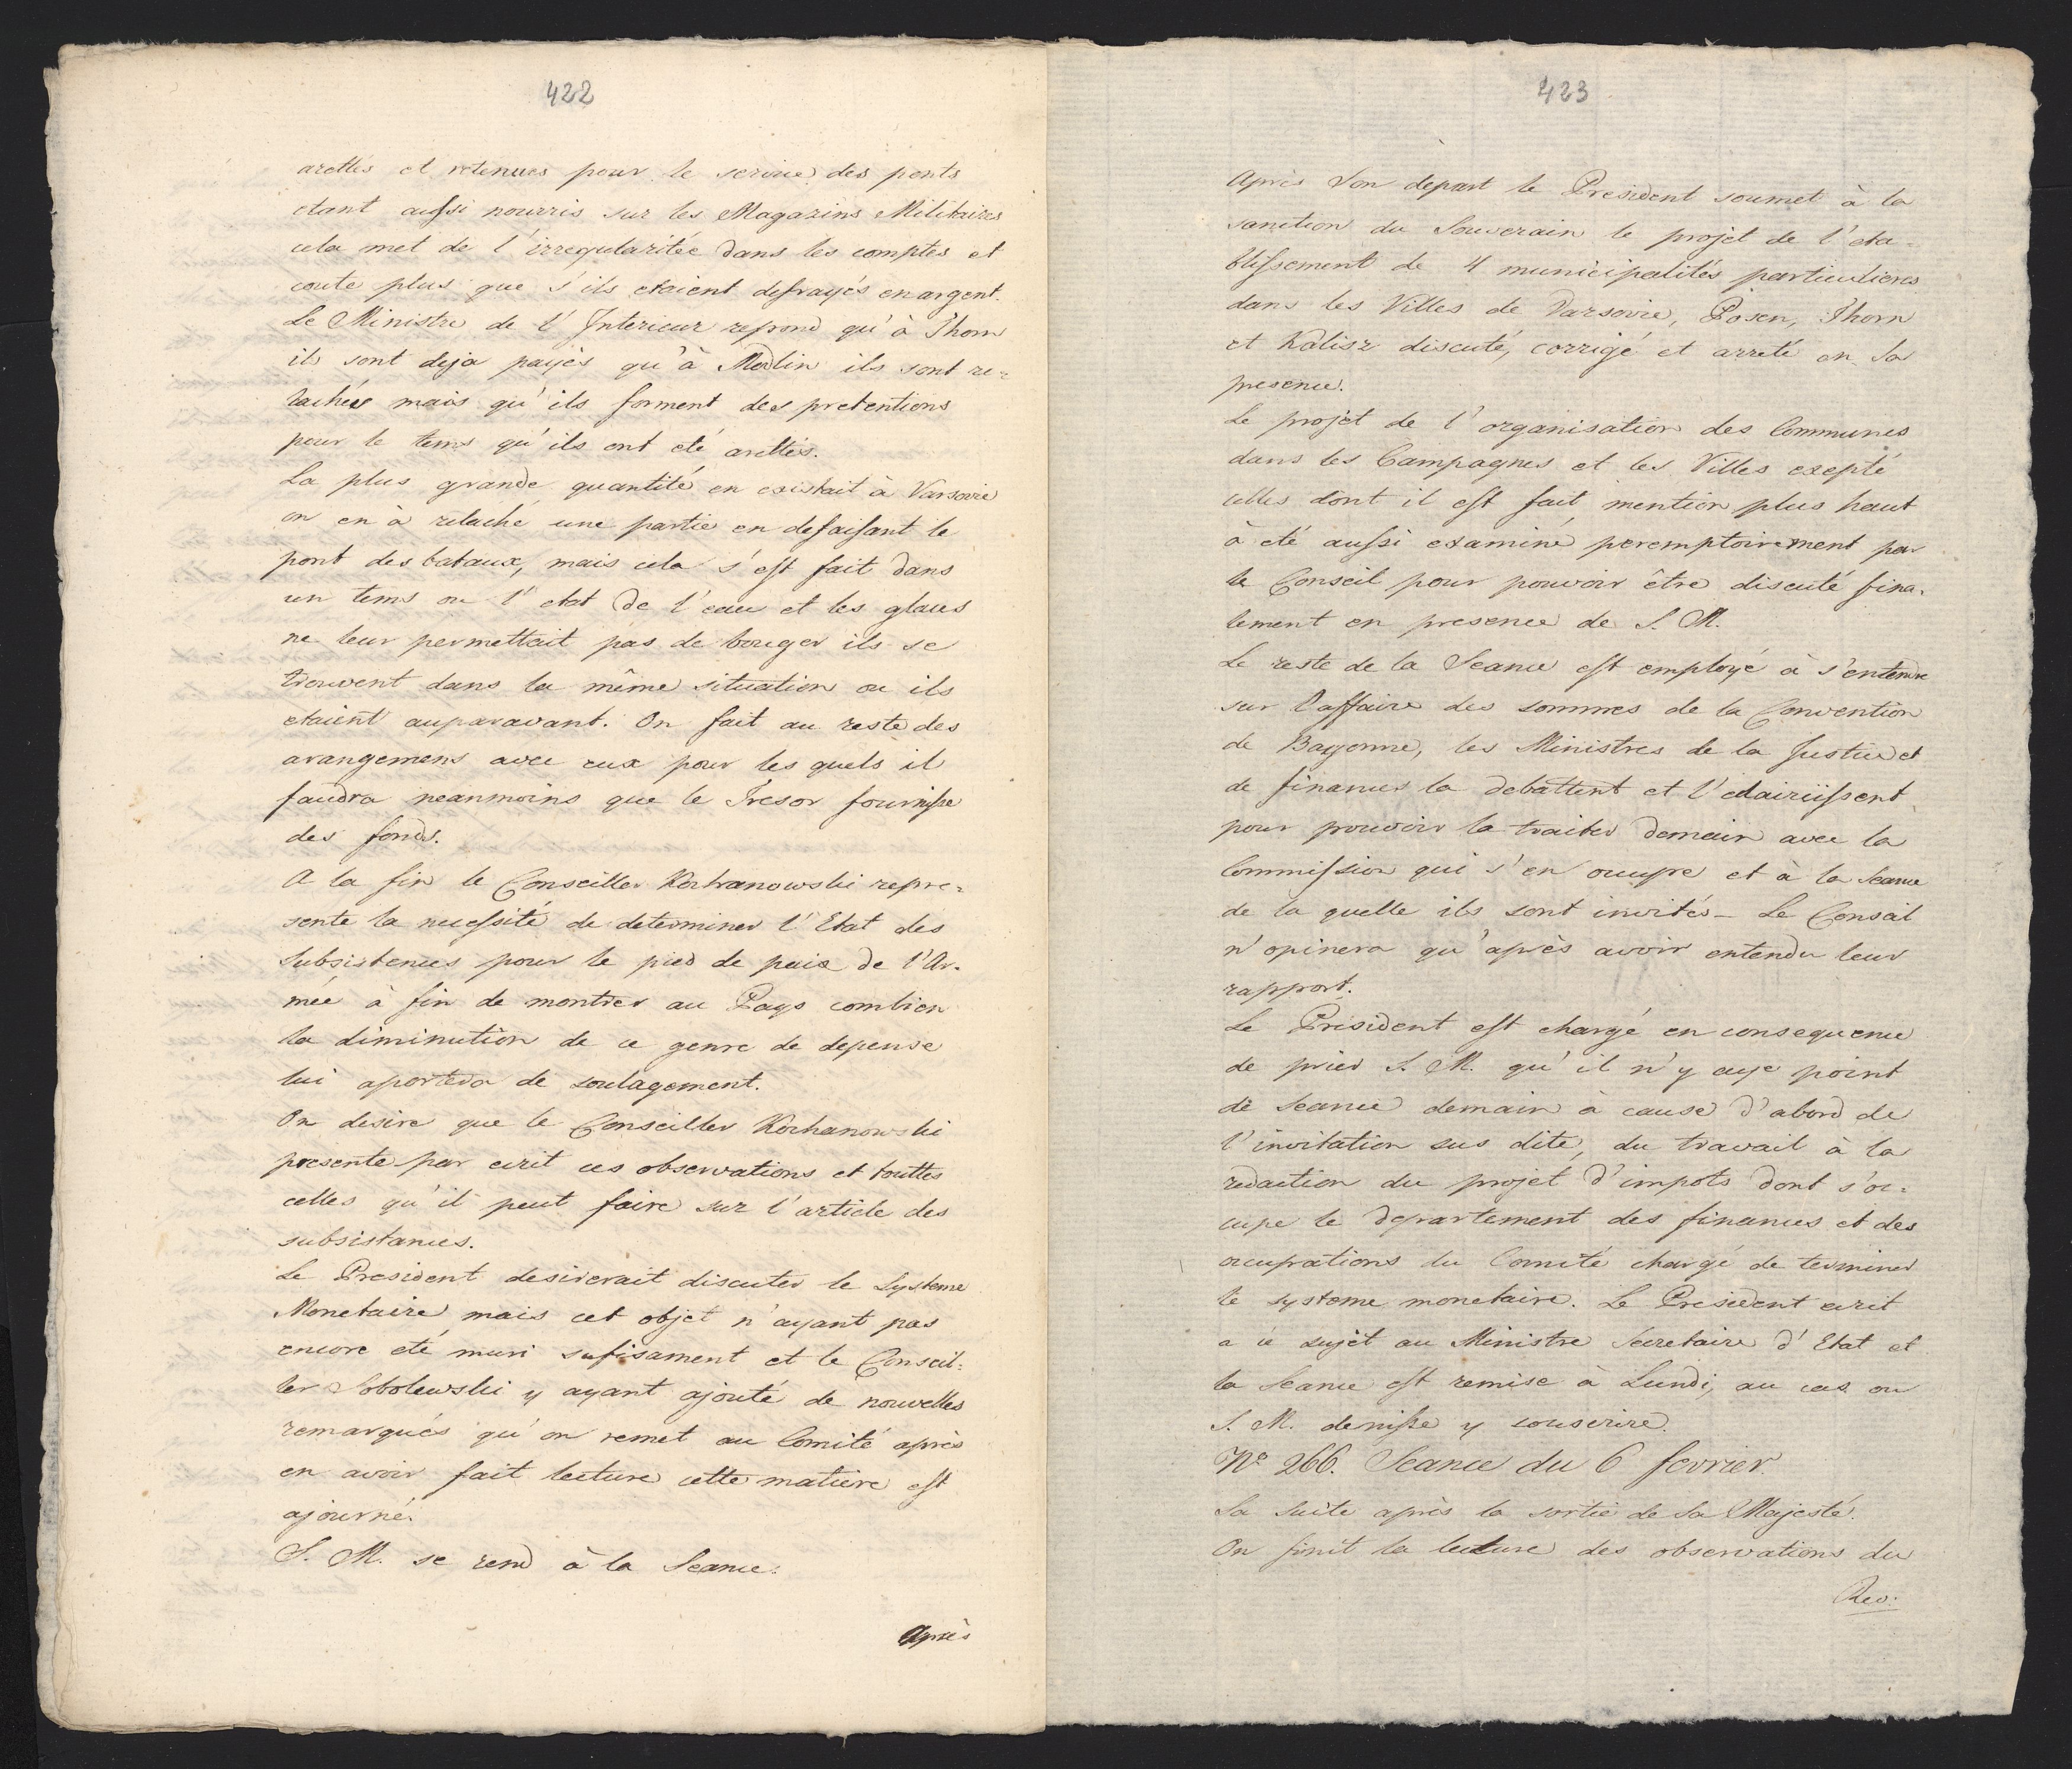 422
arettés et retenues pour le service des ponts
etant aussi nourris sur les Magazins Militaires
cela met de l'irregularitée dans les comptes et
coute plus que s'ils etaient defrayés en argent.
Le Ministre de l'Interieur repond qu'à Thorn
ils sont deja payés qu'à Modlin ils sont re=
lachés mais qu'ils forment des pretentions
pour le tems qu'ils ont eté arettés.
La plus grande quantité en existait à Varsovie
on en à relaché une partie en defaisant le
pont des bataux, mais cela s'est fait dans
un tems ou l'etat de l'eau et les glaces
ne leur permettait pas de bouger ils se
trouvent dans la même situation ou ils
etaient auparavant. On fait au reste des
arangemens avec eux pour les quels il
faudra neanmoins que le Tresor fournisse
des fonds.
A la fin le Conseiller Kochanowski repre=
sente la necessité de determiner l'Etat des
Subsistences pour le pied de paix de l'Ar=
mée à fin de montrer au Pays combien
la diminution de ce genre de depense
lui aportera de soulagement.
On desire que le Conseiller Kochanowski
presente par ecrit ces observations et touttes
celles qu'il peut faire sur l'article des
subsistances.
Le President desirerait discuter le Systeme
Monetaire mais cet objet n'ayant pas
encore eté muri sufisament et le Conseil=
ler Sobolewski y ayant ajouté de nouvelles
remarqués qu'on remet au Comité après
en avoir fait lecture cette matiere est
ajourné.
S. M. se rend à la Seance.
Après
423
Après Son depart le President soumet à la
sanction du Souverain le projet de l'eta=
blissement de 4 municipalités particulieres
dans les Villes de Varsovie, Posen, Thorn
et Kalisz discuté, corrigé et arreté en Sa
presence.
Le projet de l'organisation des Communes
dans les Campagnes et les Villes exepté
celles dont il est fait mention plus haut
à eté aussi examiné peremptoirement par
le Conseil pour pouvoir être discuté fina=
lement en presence de S. M.
Le reste de la Seance est employé à s'entendre
sur l'affaire des sommes de la Convention
de Bayonne, les Ministres de la Justice et
de finances la debattent et l'eclaircissent
pour pouvoir la traiter demain avec la
Commission qui s'en occupe et à la Seance
de la quelle ils sont invités - Le Conseil
n'opinera qu'après avoir entendu leur
rapport.
Le President est chargé en consequence
de prier S. M. qu'il n'y aye point
de Seance demain à cause d'abord de
l'invitation sus dite, du travail à la
redaction du projet d'impots dont s'oc=
cupe le departement des finances et des
occupations du Comité chargé de terminer
le systeme monetaire. Le President ecrit
a ce sujet au Ministre Secretaire d'Etat et
la Seance est remise à Lundi, au cas ou
S. M. y souscrire.
No 266. Seance du 6 fevrier.
La Suite après la sortie de Sa Majesté.
On finit la lecture des observations du